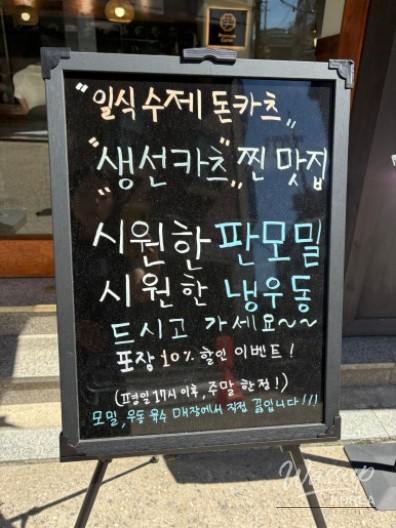 "일식 수제 돈카츠"
"생선카츠" 찐 맛집
시원한 판모밀
시원한 냉우동
드시고 가세요~~
포장 10% 할인 이벤트!
(평일 17시 이후, 주말 한정!)
모밀, 우동 육수 매장에서 직접 끓입니다!!!
Wassup
KOREA